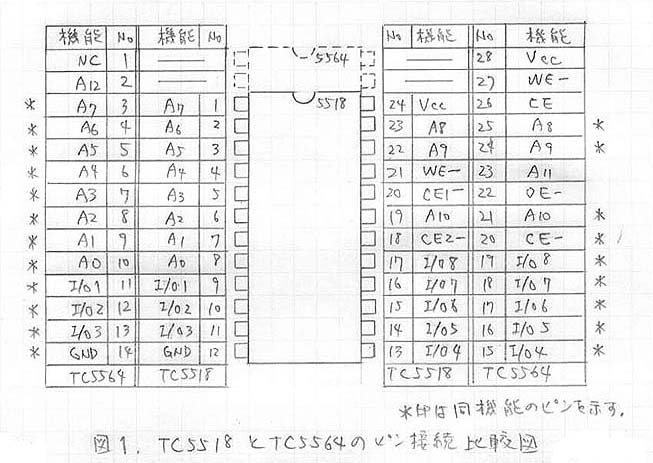 機能 No 機能 No No 機能 No 機能
NC 1 —— —— 5564 —— —— 28 Vcc
A12 2 —— —— —— —— 27 WE-
* A7 3 A7 1 5518 24 Vcc 26 CE
* A6 4 A6 2 23 A8 25 A8 *
* A5 5 A5 3 22 A9 24 A9 *
* A4 6 A4 4 21 WE- 23 A11
* A3 7 A3 5 20 CE1- 22 OE-
* A2 8 A2 6 19 A10 21 A10 *
* A1 9 A1 7 18 CE2- 20 CE- *
* A0 10 A0 8 17 I/O8 19 I/O8 *
* I/O1 11 I/O1 9 16 I/O7 18 I/O7 *
* I/O2 12 I/O2 10 15 I/O6 17 I/O6 *
* I/O3 13 I/O3 11 14 I/O5 16 I/O5 *
* GND 14 GND 12 13 I/O4 15 I/O4 *
TC5564 TC5518 TC5518 TC5564
*印は同機能のピンを示す。
図1. TC5518とTC5564のピン接続比較図